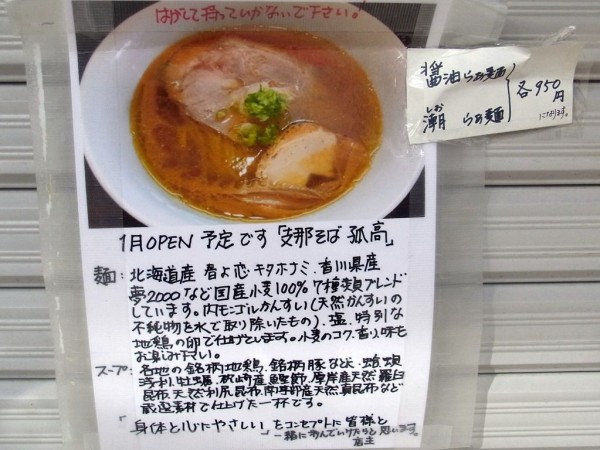 はがして持っていかないで下さい。
醤油らぁ麺
潮 らぁ麺
しお
各950円
になります。
1月OPEN 予定です「支那そば 孤高」
麺：北海道産 春よ恋・キタホナミ、香川県産
夢2000など国産小麦100% 7種類ブレンド
しています。内モンゴルかんすい(天然かんすいの
不純物を水で取り除いたもの)、塩、特別な
地鶏の卵で仕上げています。小麦のコク、香り、味も
お楽しみ下さい。
スープ：各地の銘柄地鶏、銘柄豚など、蛤、蜆
浅利、牡蠣、枕崎産鰹節、厚岸産天然羅臼
昆布、天然利尻昆布、南茅部産天然真昆布など
厳選素材で仕上げた一杯です。
「身体と心にやさしい」をコンセプトに皆様と
一緒に歩んでいけたらと思います。
店主